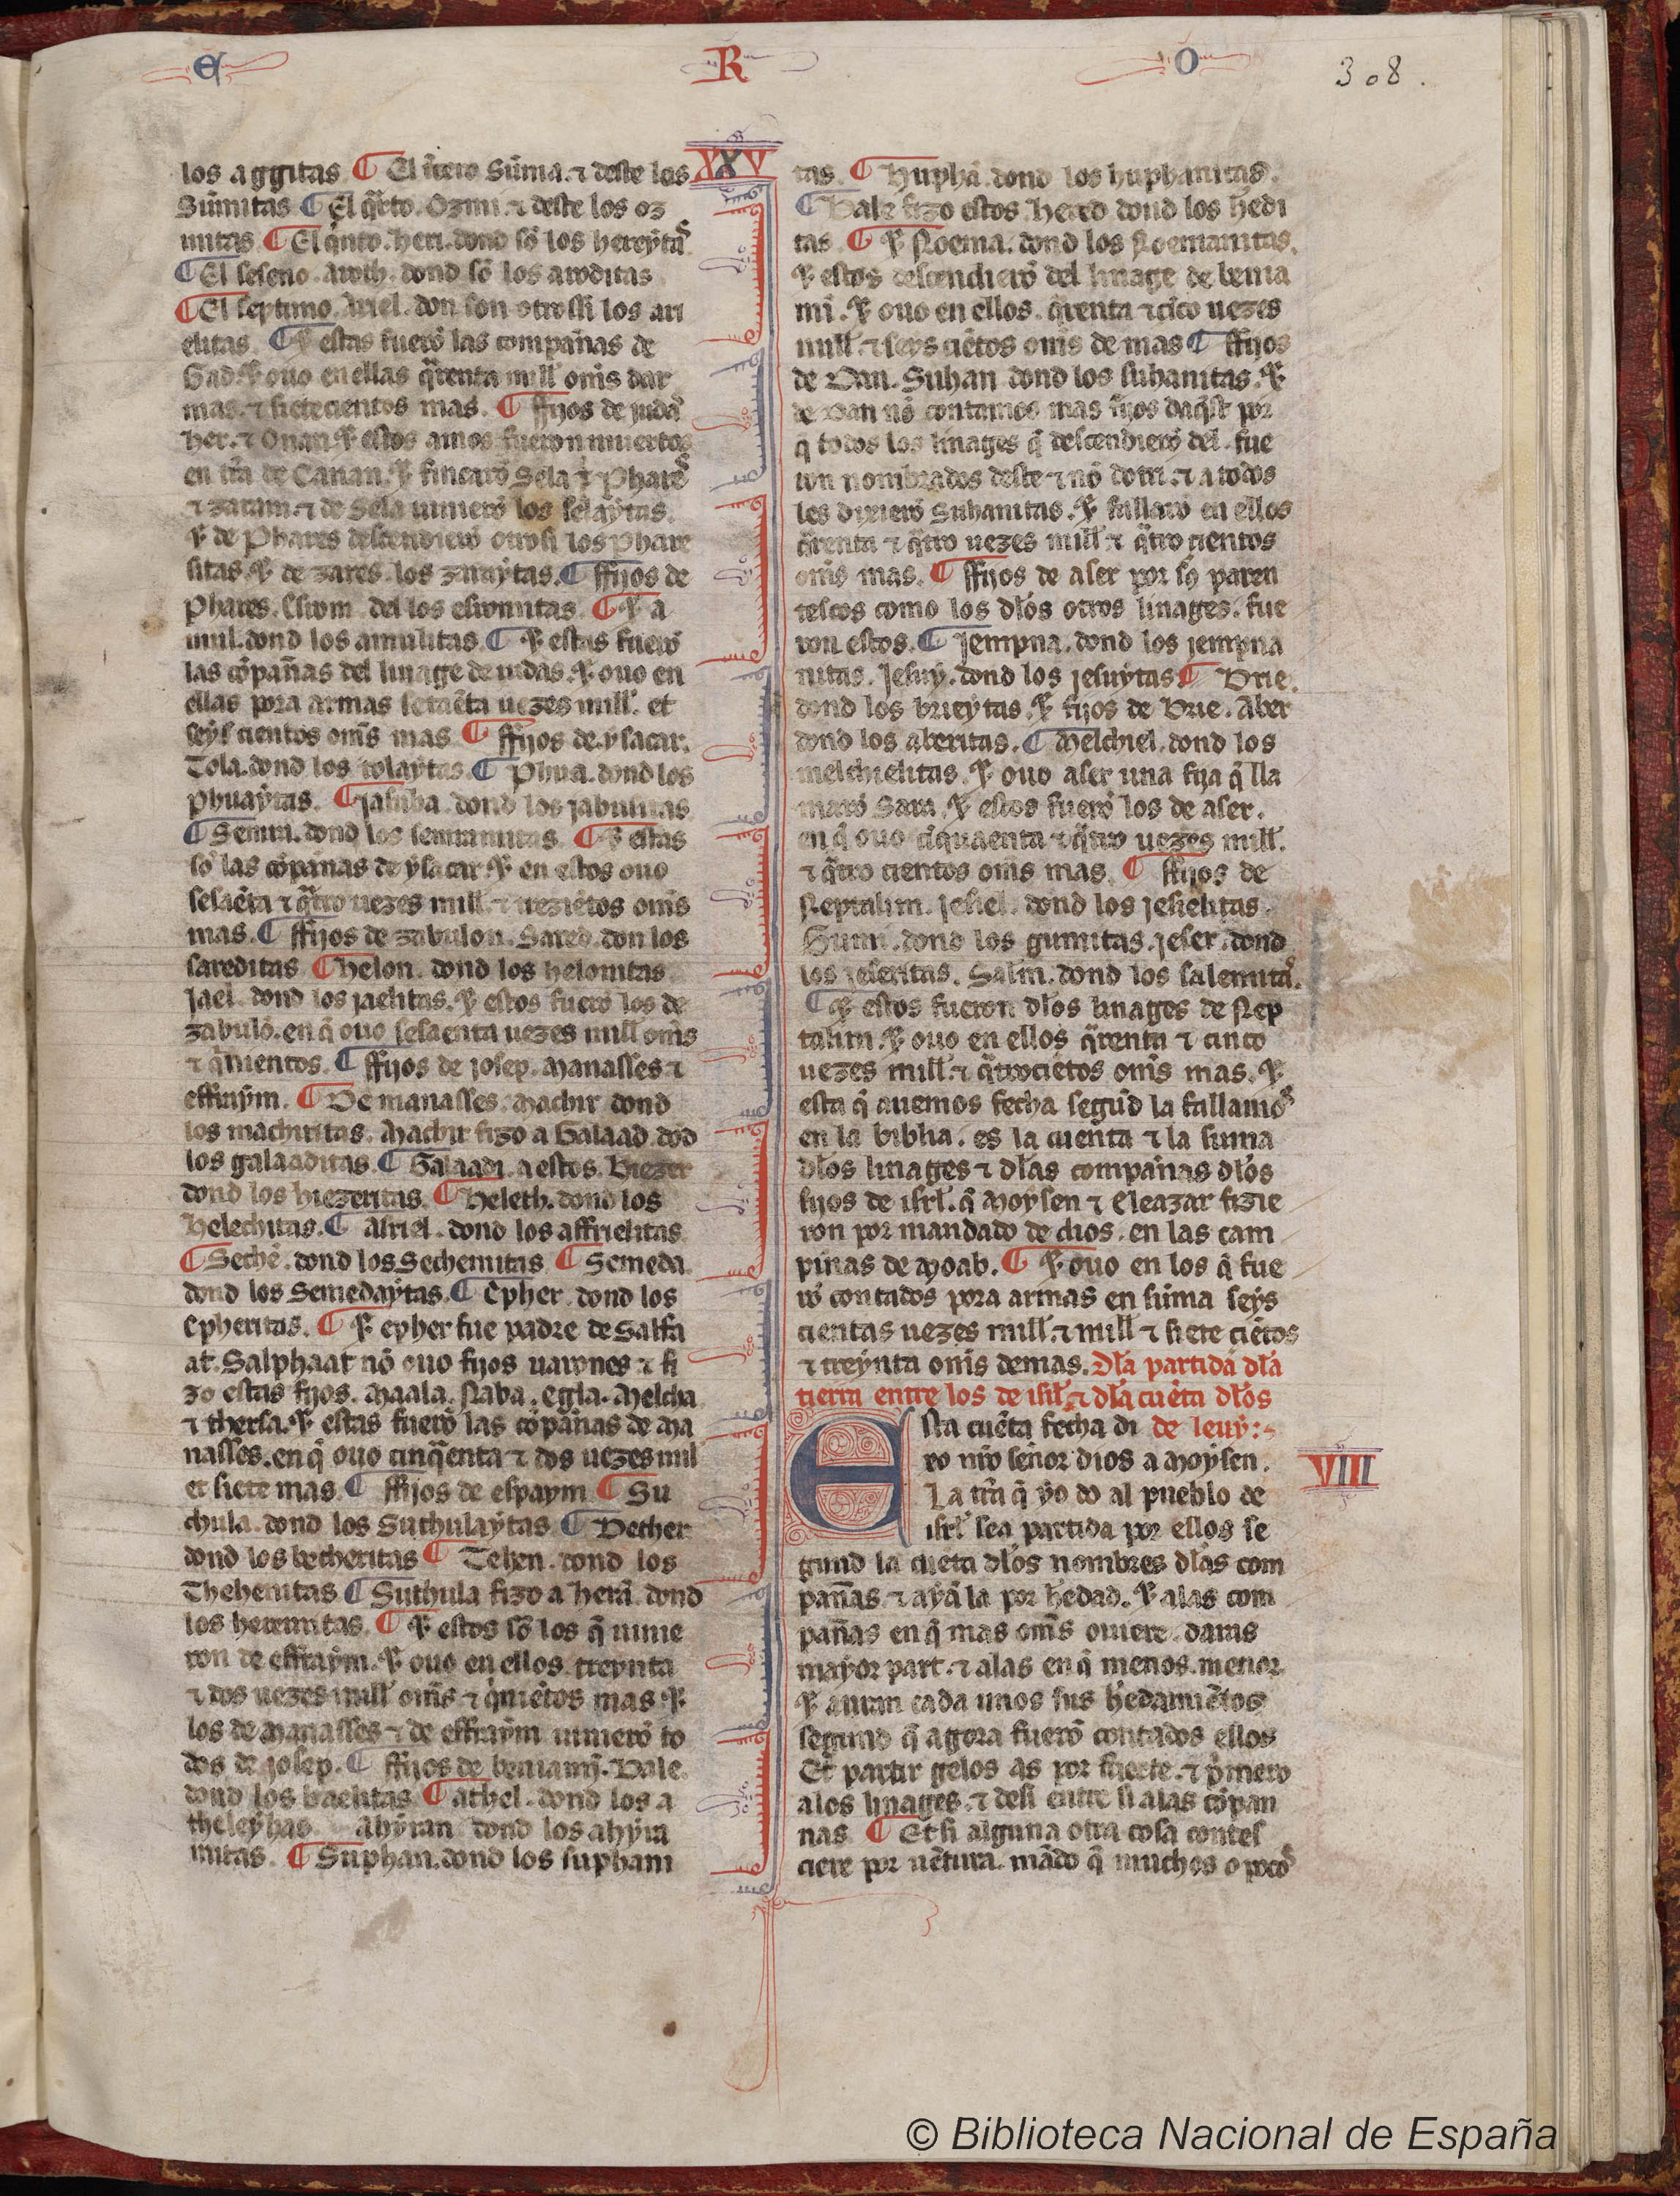 E R O
308.
XXV
los aggitas ¶ El t̃cero Sũma. ⁊ deste los
Sũnitas ¶ El q̃rto. Ozni. ⁊ deste los oz
nitas ¶ El q̃nto. heri. dond sõ los hereytas
¶ El seseno. Aroth. dond sõ los aroditas
¶ El septimo. Ariel. don son otrossi los ari
elitas. ¶ ⁊ estas fuerõ las compañas de
Gad. ⁊ ouo en ellas q̃renta mill om̃s dar
mas. ⁊ sietecientos mas. ¶ ffijos de juda
her. ⁊ Onan. ⁊ estos amos fueron muertos
en tr̃a de Canan. ⁊ fincarõ Sela ⁊ Phares
⁊ zaram. ⁊ de Sela uinierõ los selaytas.
⁊ de Phares descendierõ otrosi los phare
sitas. ⁊ de zares. los zaraytas. ¶ ffijos de
Phares. Esrom. del los esromitas ¶ ⁊ a
mul. dond los amulitas. ¶ ⁊ estas fuerõ
las cõpañas del linage de iudas. ⁊ ouo en
ellas pora armas setaẽta uezes mill. et
seys cientos om̃s mas ¶ ffijos de ysacar.
Tola. dond los tolaytas. ¶ Phua. dond los
phuaytas. ¶ Jasuba. dond los jabusitas
¶ Semrã. dond los semranitas ¶ ⁊ estas
sõ las cõpañas de ysacar. ⁊ en estos ouo
sesaẽta ⁊ q̃tro uezes mill. ⁊ treziẽtos om̃s
mas. ¶ ffijos de zabulon. Sared. don los
sareditas ¶ Helon. dond los helonitas
Jael. dond los jaelitas. ⁊ estos fuerõ los de
zabulõ. en q̃ ouo sesaenta uezes mill om̃s
⁊ q̃nientos. ¶ ffijos de josep. Manasses ⁊
effraym. ¶ De manasses. Machir dond
los machiritas. Machir fizo a Galaad. dõd
los galaaditas. ¶ Galaadi. a estos. Hiezer
dond los hiezeritas. ¶ Heleth. dond los
Helechitas. ¶ Asriel. dond los assrielitas.
¶ Sechẽ. dond los Sechemitas ¶ Semeda.
dond los Semedaytas. ¶ Epher. dond los
Epheritas. ¶ ⁊ epher fue padre de Salfa
at. Salphaat nõ ouo fijos uarones ⁊ fi
zo estas fijas. Maala. Naba. Egla. Melcha
⁊ thersa. ⁊ estas fuerõ las cõpañas de Ma
nasses. en q̃ ouo cinq̃enta ⁊ dos uezes mil
et siete mas. ¶ ffijos de efraym ¶ Su
chula. dond los Suthulaytas ¶ Bether
dond los betheritas ¶ Tehen. dond los
Thehenitas ¶ Suthula fizo a herã. dond
los herenitas. ¶ ⁊ estos sõ los q̃ uinie
ron de effraym. ⁊ ouo en ellos treynta
⁊ dos uezes mill om̃s ⁊ q̃niẽtos mas ⁊
los de Manasses ⁊ de effraym uinierõ to
dos de josep. ¶ ffijos de beniamĩ. Bale.
dond los baelitas. ¶ Athel. dond los a
theleyhas. ahyran dond los ahyra
nitas. ¶ Suphan. dond los suphani
tas. ¶ Huphã. dond los huphanitas.
¶ Bale fizo estos. Hered dond los hedi
tas. ¶ ⁊ Noema. dond los Noemanitas.
⁊ estos descendierõ del linage de benia
mĩ. ⁊ ouo en ellos. q̃renta ⁊ cĩco uezes
mill. ⁊ seys ciẽtos om̃s de mas ¶ ffijos
de Dan. Suhan dond los suhanitas. ⁊
de Dan nõ contamos mas fijos daq̃st por
q̃ todos los linages q̃ descendierõ del. fue
ron nombrados deste ⁊ nõ dotri. ⁊ a todos
les dixierõ Suhanitas. ⁊ fallarõ en ellos
q̃renta ⁊ q̃tro uezes mill ⁊ q̃tro cientos
om̃s mas. ¶ ffijos de aser por sus paren
tescos como los dl̃os otros linages. fue
ron estos. ¶ Jempna. dond los jempna
nitas. Jesuy. dond los jesuytas ¶ Brie.
dond los brieytas. ⁊ fijos de Brie. Aber
dond los aberitas. ¶ Melchiel. dond los
melchielitas. ⁊ ouo aser una fija q̃ lla
marõ Sara. ⁊ estos fuerõ los de aser.
en q̃ ouo cĩquaenta ⁊ q̃tro uezes mill.
⁊ q̃tro cientos om̃s mas. ¶ ffijos de
Neptalim. Jesiel. dond los jesielitas.
Guni. dond los gunitas. Jeser. dond
los jeseritas. Salm. dond los salemitas.
¶ ⁊ estos fueron dl̃os linages de Nep
talim. ⁊ ouo en ellos q̃renta ⁊ cinco
uezes mill. ⁊ q̃trociẽtos om̃s mas. ⁊
esta q̃ auemos fecha segũd la fallamos
en la biblia. es la cuenta ⁊ la suma
dl̃os linages ⁊ dl̃as compañas dl̃os
fijos de isrl̃. q̃ Moysen ⁊ Eleazar fizie
ron por mandado de dios. en las cam
pinas de Moab. ¶ ⁊ ouo en los q̃ fue
rõ contados pora armas en sũma seys
cientas uezes mill. ⁊ mill ⁊ siete ciẽtos
⁊ treynta om̃s demas. Dl̃a partida dl̃a
tierra entre los de isrl̃. ⁊ dl̃a cuẽta dl̃os
de leuy:
Esta cuẽta fecha di
xo nr̃o señor dios a Moysen.
La tr̃a q̃ yo do al pueblo de
isrl̃ sea partida por ellos se
gund la cuẽta dl̃os nombres dl̃as com
pañas. ⁊ ayã la por hedad. ⁊ alas com
pañas en q̃ mas om̃s ouiere. daras
mayor part. ⁊ alas en q̃ menos. menor.
⁊ auran cada unos sus hedamiẽtos
segund q̃ agora fuerõ contados ellos
Et partir gelos as por suerte. ⁊ p̃mero
alos linages. ⁊ desi entre si alas cõpan
nas. ¶ Et si alguna otra cosa contes
ciere por uẽtura. mãdo q̃ muchos o pocos
VIII
© Biblioteca Nacional de España